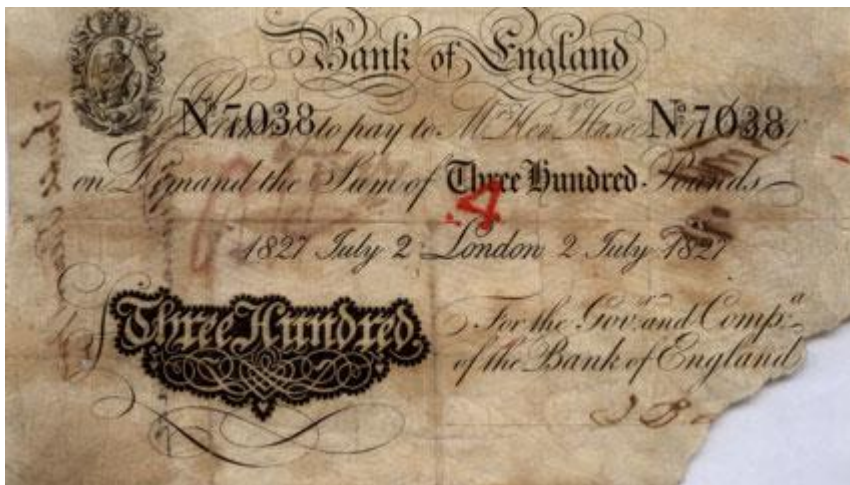 Bank of England
No. 7038 to pay to Mr. Hen. Hase No. 7038
on Demand the Sum of Three Hundred Pounds
1827 July 2 London 2 July 1827
Three Hundred.
For the Govr. and Compa.
of the Bank of England